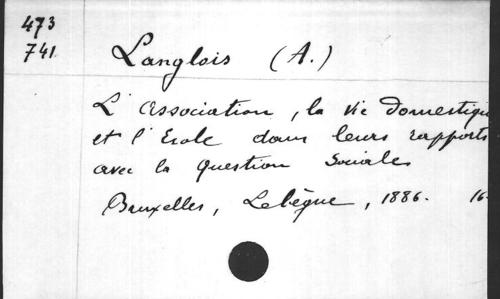 473
741
Langlois (A.)
L'Association, la vie domestique
et l'Ecole dans leurs rapports
avec la Question Sociale
Bruxelles, Lebègue, 1886. 16